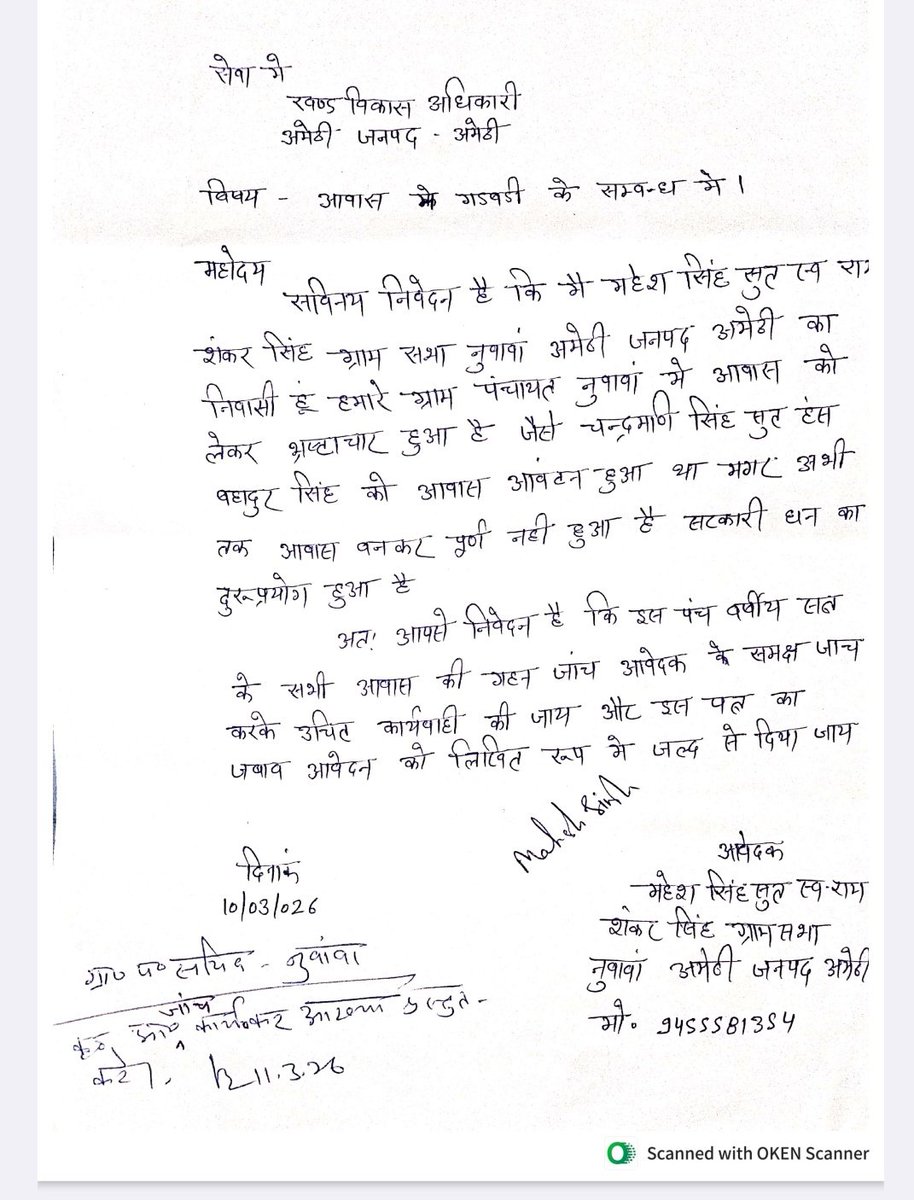 सेवा मे
खण्ड विकास अधिकारी
अमेठी जनपद - अमेठी
विषय - आवास मे गडवडी के सम्वन्ध मे ।
महोदय
सविनय निवेदन है कि मै महेश सिंह सुत स्व राम
शंकर सिंह ग्राम सभा नुवावां अमेठी जनपद अमेठी का
निवासी हूं हमारे ग्राम पंचायत नुवावां मे आवास को
लेकर भ्रष्टाचार हुआ है जैसे चन्द्रमणि सिंह सुत हंस
वहादुर सिंह को आवास आंवटन हुआ था मगर अभी
तक आवास वनकर पूर्ण नही हुआ है सरकारी धन का
दुरूप्रयोग हुआ है
अतः आपसे निवेदन है कि इस पंच वर्षीय सत्र
के सभी आवास की गहन जांच आवेदक के समक्ष जाच
करके उचित कार्यवाही की जाय और इस पत्र का
जवाव आवेदन को लिखित रूप मे जल्द से दिया जाय
Mahesh Singh
दिनांक
10/03/026
आवेदक
महेश सिंह सुत स्व. राम
शंकर सिंह ग्राम सभा
नुवावां अमेठी जनपद अमेठी
मो. 9455581354
ग्रा० पं० सचिव - नुवांवा
जांच
आख्या प्रस्तुत -
करें ।
11.3.26
Scanned with OKEN Scanner